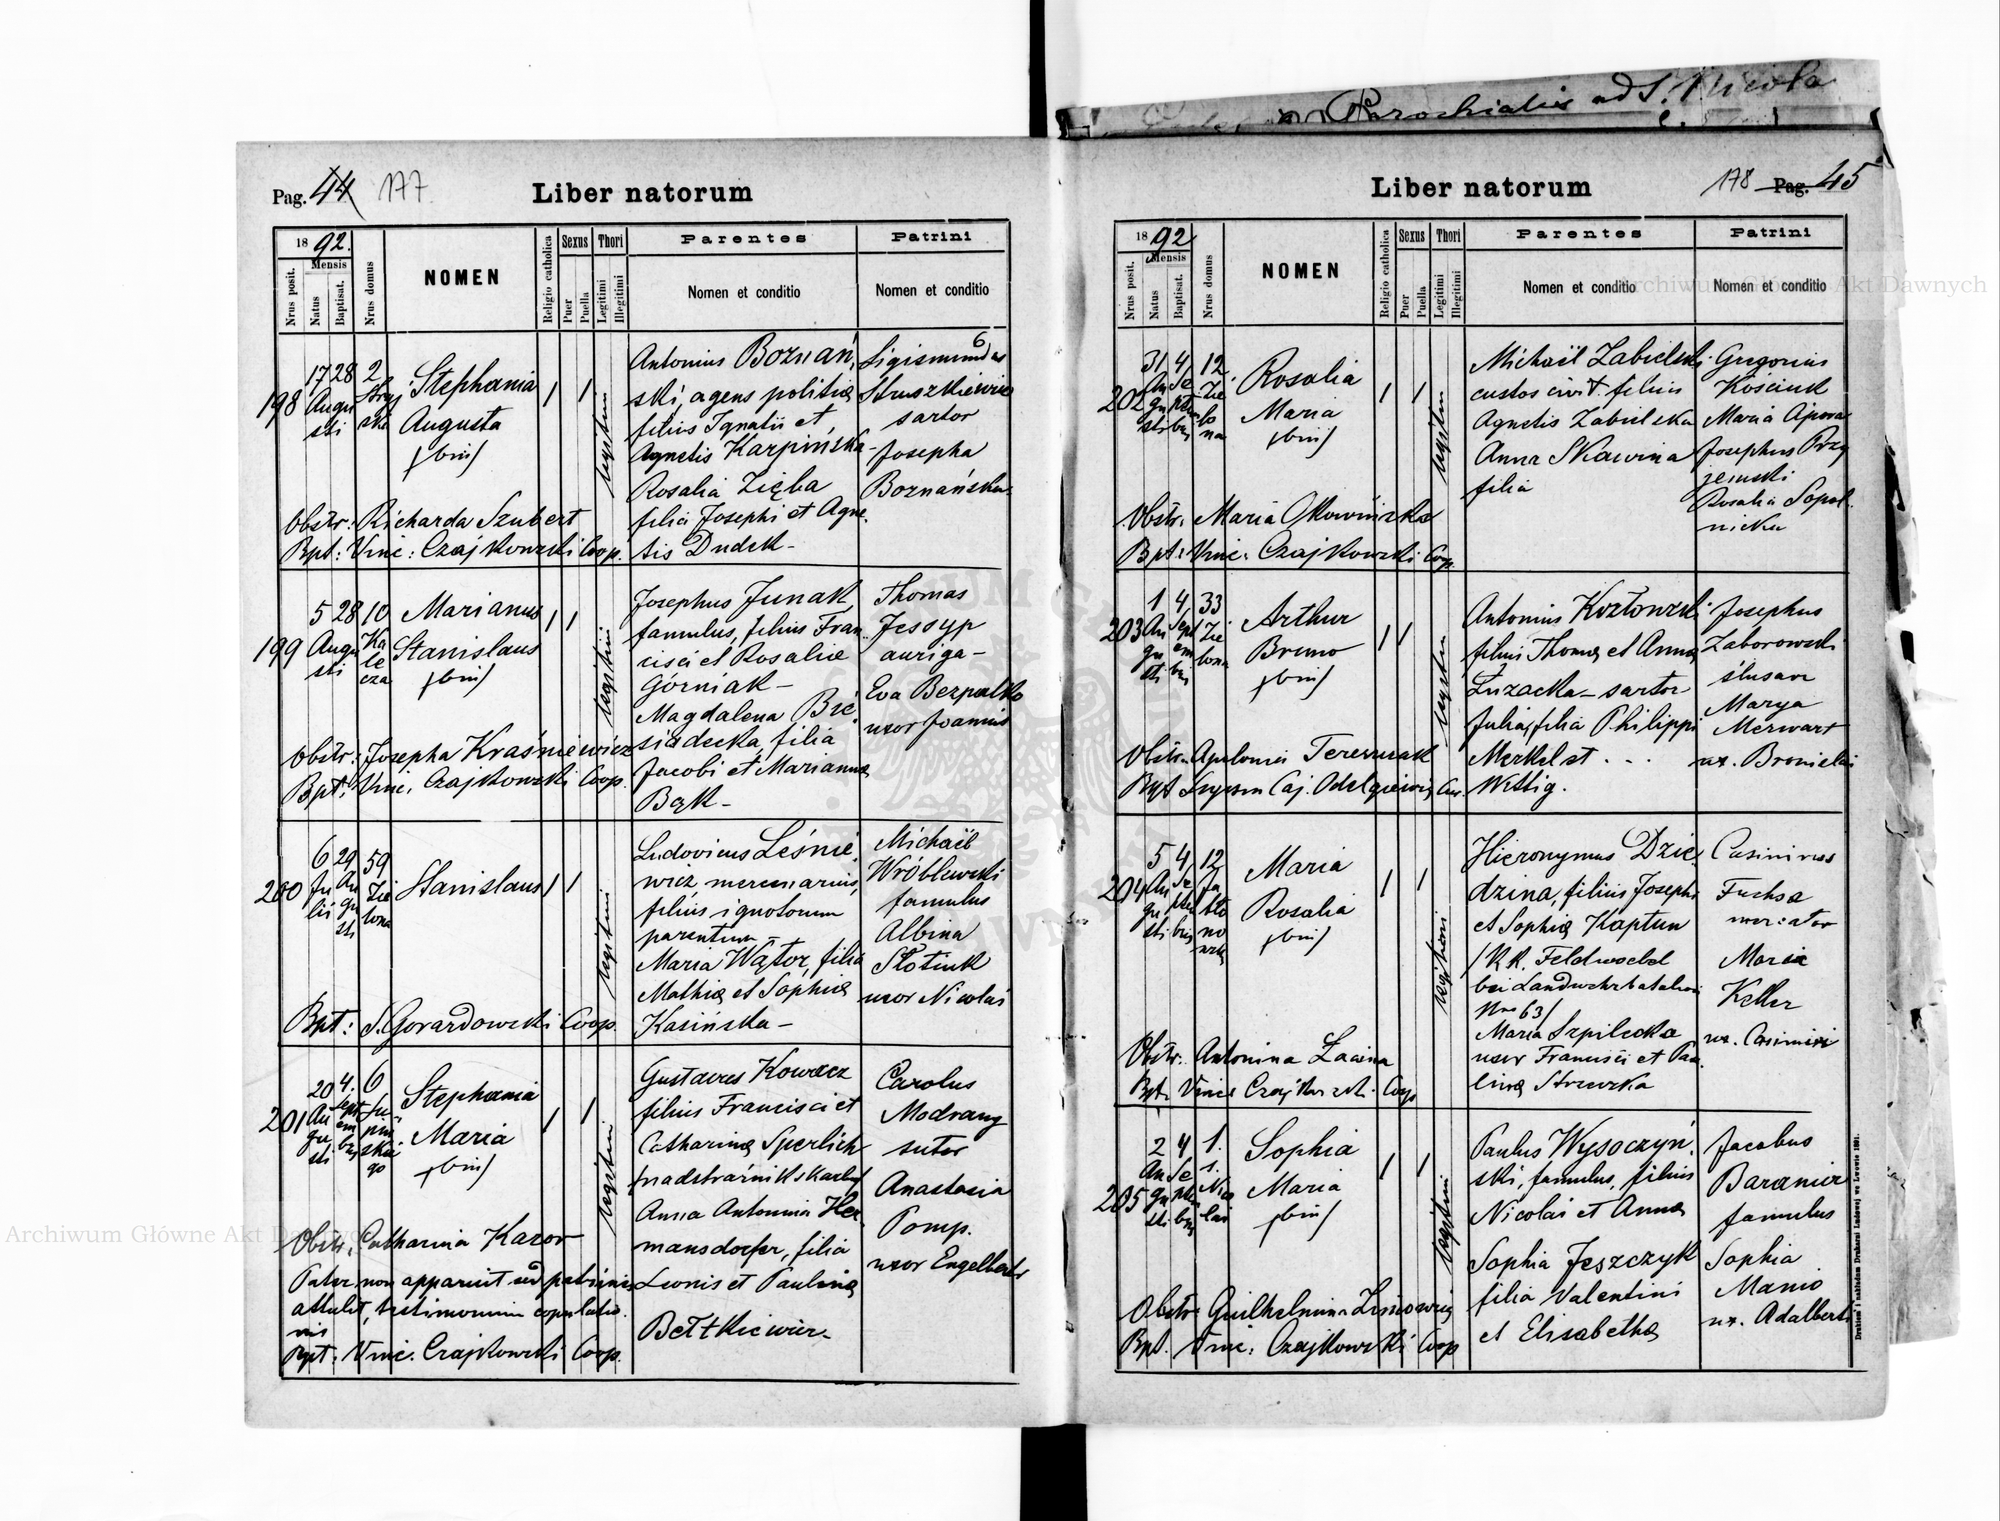 Parochialis ad S. Nicola
Pag. 44 177
Liber natorum
1892.
Nrus posit.
Mensis
Natus
Baptisat.
Nrus domus
NOMEN
Religio catholica
Sexus
Puer
Puella
Thori
Legitimi
Illegitimi
Parentes
Nomen et conditio
Patrini
Nomen et conditio
198
17 28 2
Augu
sti
Stephania
Augusta
(bin)
legitimi
Antonius Boznań
ski, agens politiae
filius Ignatii et
Agnetis Karpińska
Rosalia Zięba
filia Josephi et Agne
tis Dudek
Sigismundus
Struszkiewicz
sartor
Josepha
Boznańska
Obstr: Richarda Szubert
Bpt: Vinc: Czajkowski Coop.
199
5 28 10
Augu
sti
Ka
le
cza
Marianus
Stanislaus
(bin)
legitimi
Josephus Junak
famulus, filius Fran
cisci et Rosaliae
Górniak
Magdalena Bie
siadecka, filia
Jacobi et Mariannae
Bąk
Thomas
Jessyp
auriga
Eva Bezpalko
uxor Joannis
Obstr: Josepha Kraśniewicz
Bpt: Vinc. Czajkowski Coop.
200
6 29 59
Ju
lii
Au
gu
sti
Zie
lona
Stanislaus
legitimi
Ludovicus Leśnie
wicz, mercenarius,
filius ignotorum
parentum
Maria Wątor, filia
Mathiae et Sophiae
Kasińska
Michaël
Wróblewski
famulus
Albina
Słotiuk
uxor Nicolai
Bpt: S. Gorazdowski Coop.
201
20 4. 6
Au
gu
sti
Sept
em
bris
Stephania
Maria
(bin)
legitimi
Gustavus Kowacz
filius Francisci et
Catharinae Sperlich
nadstrażnik skarby
Anna Antonina Her
mansdorfer, filia
Leonis et Paulinae
Carolus
Modrany
sutor
Anastasia
Pomp.
uxor Engelberti
Obstr. Catharina Kazor
Pater non apparuit sed patrinus
attulit, testimonium copulatio
nis
Bpt: Vinc. Czajkowski Coop.
Liber natorum
178 Pag. 45
1892
Nrus posit.
Mensis
Natus
Baptisat.
Nrus domus
NOMEN
Religio catholica
Sexus
Puer
Puella
Thori
Legitimi
Illegitimi
Parentes
Nomen et conditio
Patrini
Nomen et conditio
202
31 4 12
Au
gu
sti
Se
ptem
bris
Zie
lo
na
Rosalia
Maria
(bin)
legitimi
Michaël Zabielski
custos civit. filius
Agnetis Zabielska
Anna Skawina
filia
Gregorius
Kościuk
Maria
Josephus Przy
jemski
Rosalia Sopol
nicka
Obstr. Maria
Bpt: Vinc: Czajkowski Coop.
203
1 4, 33
Au
gu
sti
Sept
em
bris
Zie
lona
Arthur
Bruno
(bin)
Antonius Kozłowski
filius Thomae et Annae
Łuzacka — sartor
Julia, filia Philippi
Merkel et . . .
Wettig.
Josephus
Zaborowski
ślusarz
Marya
Merwart
ux. Bronislai
Obstr. Apolonia
Bpt
204
5 4, 12
Au
gu
sti
Se
ptem
bris
Ja
bło
no
wska
Maria
Rosalia
(bin)
legitimi
Hieronymus Dzie
dzina, filius Josephi
et Sophiae Kaptun
/K. K. Feldwebel
bei Landwehrbatalion
Nro 63/
Maria Szpilecka
uxor Francisci et Pau
linae
Casimirus
Fuchsa
mercator
Maria
Keller
ux. Casimiri
Obstr. Antonina
Bpt. Vinc. Czajkowski Coop
205
2 4 1.
Au
gu
sti
Se
ptem
bris
s.
Nico
lai
Sophia
Maria
(bin)
legitimi
Paulus Wysoczyń
ski, famulus, filius
Nicolai et Annae
Sophia Jeszczyk
filia Valentini
et Elisabethae
Jacobus
Baranier
famulus
Sophia
Manio
ux. Adalberti
Obstr: Guilhelmina
Bpt. Vinc: Czajkowski Coop
Drukiem i nakładem Drukarni Ludowej we Lwowie 1891.
Archiwum Główne Akt Dawnych
Archiwum Główne Akt Dawnych